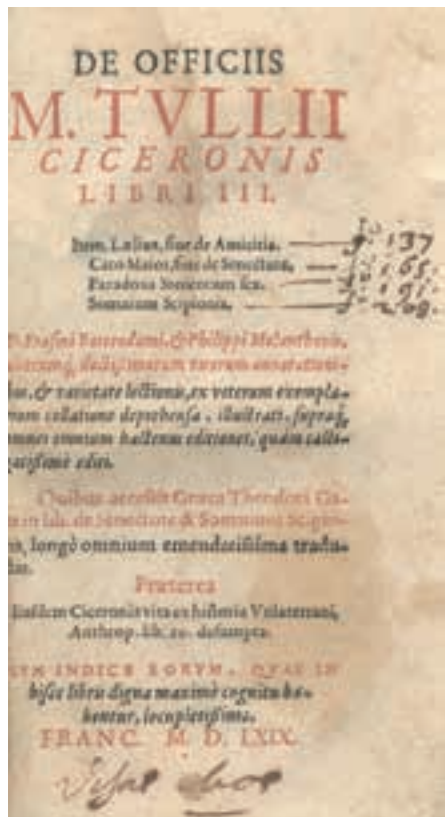 DE OFFICIIS
M. TVLLII
CICERONIS
LIBRI III.
Item, Lælius, siue de Amicitia. — fo. 137
Cato Maior, siue de Senectute. — fo. 165.
Paradoxa Stoicorum sex. — fo. 191.
Somnium Scipionis. — fo. 208.
D. Erasmi Roterodami, & Philippi Melanthonis,
doctissimorum virorum annotationi-
bus, & varietate lectionis, ex veterum exempla-
rium collatione deprehensa, illustrati, supraq́;
omnes omnium hactenus editiones, quàm casti-
gatissimè editi.
Quibus accessit Græca Theodori Ga-
in lib. de Senectute & Somnium Scipio-
nis, longè omnium emendatissima tradu-
Præterea
Eiusdem Ciceronis vita ex historia Volaterrani,
Anthrop. lib. desumpta.
CVM INDICE EORVM, QVAE IN
hisce libris digna maximè cognitu ha-
bentur, locupletissimo.
FRANC. M. D. LXIX.